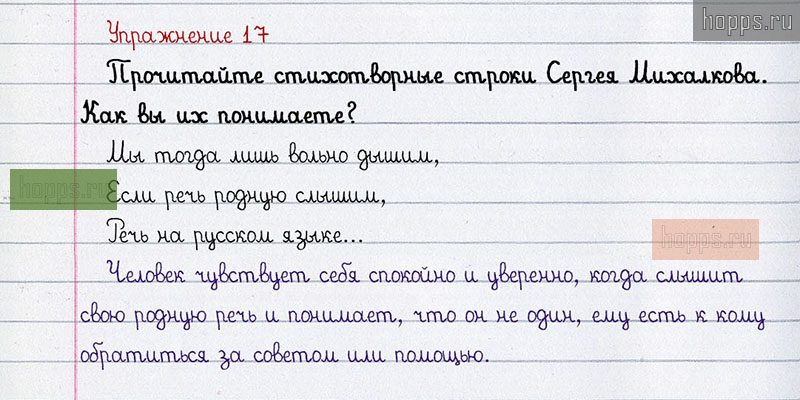 hopps.ru
Упражнение 17
Прочитайте стихотворные строки Сергея Михалкова.
Как вы их понимаете?
Мы тогда лишь вольно дышим,
hopps.ru
Если речь родную слышим,
Речь на русском языке...
hopps.ru
Человек чувствует себя спокойно и уверенно, когда слышит
свою родную речь и понимает, что он не один, ему есть к кому
обратиться за советом или помощью.